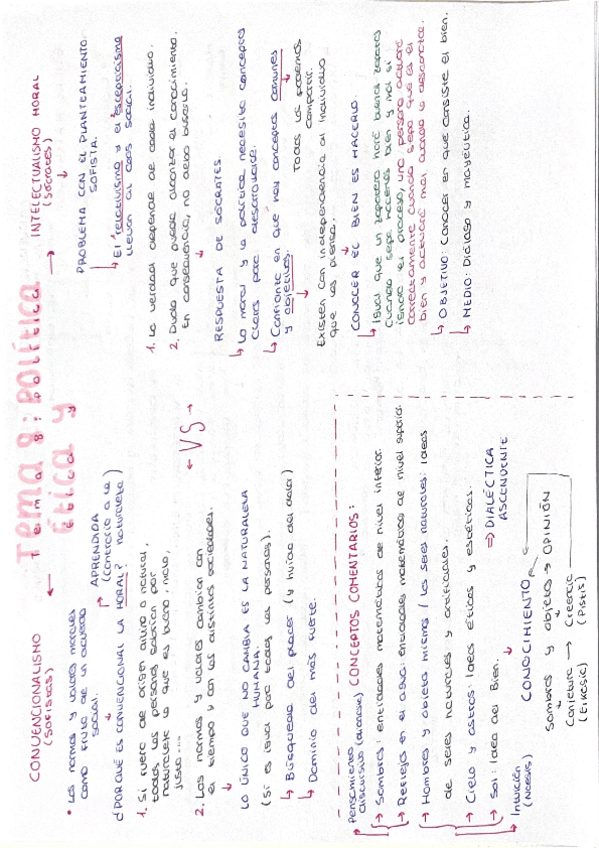 Tema 8: POLÍTICA
Tema 8: Política
Ética y
CONVENCIONALISMO
(Sofistas)
• Las normas y valores morales
como fruto de un acuerdo
social.
¿PORQUÉ ES CONVENCIONAL LA MORAL?
APRENDIDA
(contrario a la
naturaleza)
1. Si fuere de origen divino o natural,
todas las personas sabrían por
naturaleza lo que es bueno, malo,
justo...
2. Las normas y valores cambian con
el tiempo y con las distintas sociedades.
LO ÚNICO QUE NO CAMBIA ES LA NATURALEZA
HUMANA.
(Si es igual para todas las personas).
↳ Búsqueda del placer (y huida del dolor)
↳ Dominio del más fuerte.
← VS →
INTELECTUALISMO MORAL
(Sócrates)
PROBLEMA CON EL PLANTEAMIENTO
SOFISTA.
↳ El relativismo y el escepticismo
llevan al caos social.
1. La verdad depende de cada individuo.
2. Duda que puede alcanzar el conocimiento.
En consecuencia, no debo buscarlo.
RESPUESTA DE SÓCRATES.
↳ La moral y la política necesita conceptos
claros para desarrollarse.
↳ Confianza en que hay conceptos comunes
y objetivos.
Todos los podemos
compartir.
Existen con independencia al individuo
que los piensa.
CONOCER EL BIEN ES HACERLO.
↳ Igual que un zapatero hará buenos zapatos
cuando sepa hacerlos bien y mal si
ignora el proceso, una persona actuará
correctamente cuando sepa que es el
bien y actuará mal cuando lo desconozca.
↳ OBJETIVO: Conocer en que consiste el bien.
↳ MEDIO: Diálogo y mayéutica.
Pensamiento
discursivo (dianoia)
CONCEPTOS COMENTARIOS:
→ Sombras: entidades matemáticas de nivel inferior.
→ Reflejos en el agua: entidades matemáticas de nivel superior.
→ Hombres y objetos mismos / los seres naturales: Ideas
de seres naturales y artificiales.
→ Cielo y astros: Ideas éticas y estéticas.
→ Sol: Idea del Bien.
⇒ DIALÉCTICA
ASCENDENTE
Intuición
(Noesis)
CONOCIMIENTO
Sombras y objetos → OPINIÓN
Conjetura → Creencia
(Eikasia) (Pistis)